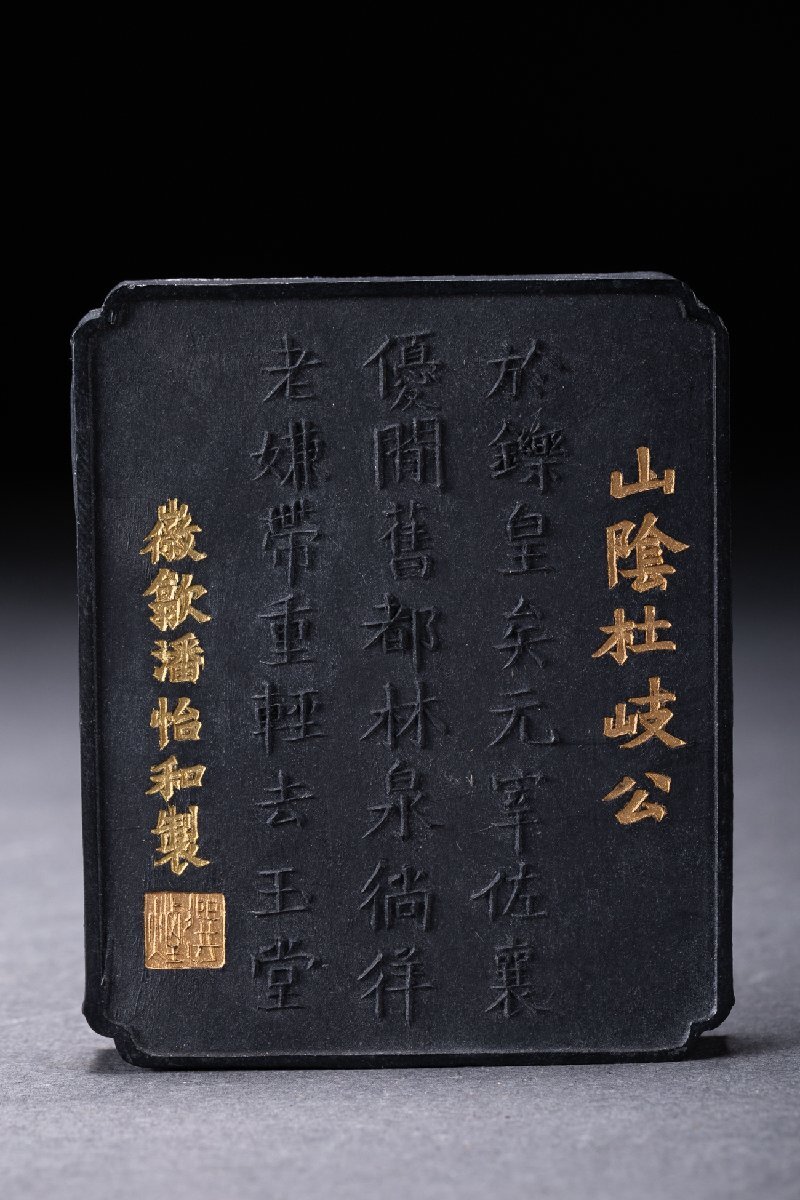 山陰杜岐公
於鑠皇矣元宰佐襄
優閒舊都林泉徜徉
老嫌帶重輕去玉堂
徽歙潘怡和製